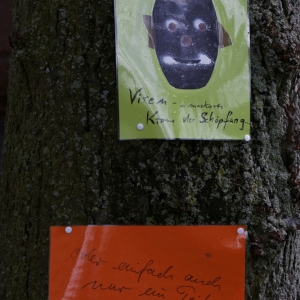 Viren - 
Krone der Schöpfung
oder einfach auch
nur ein Teil